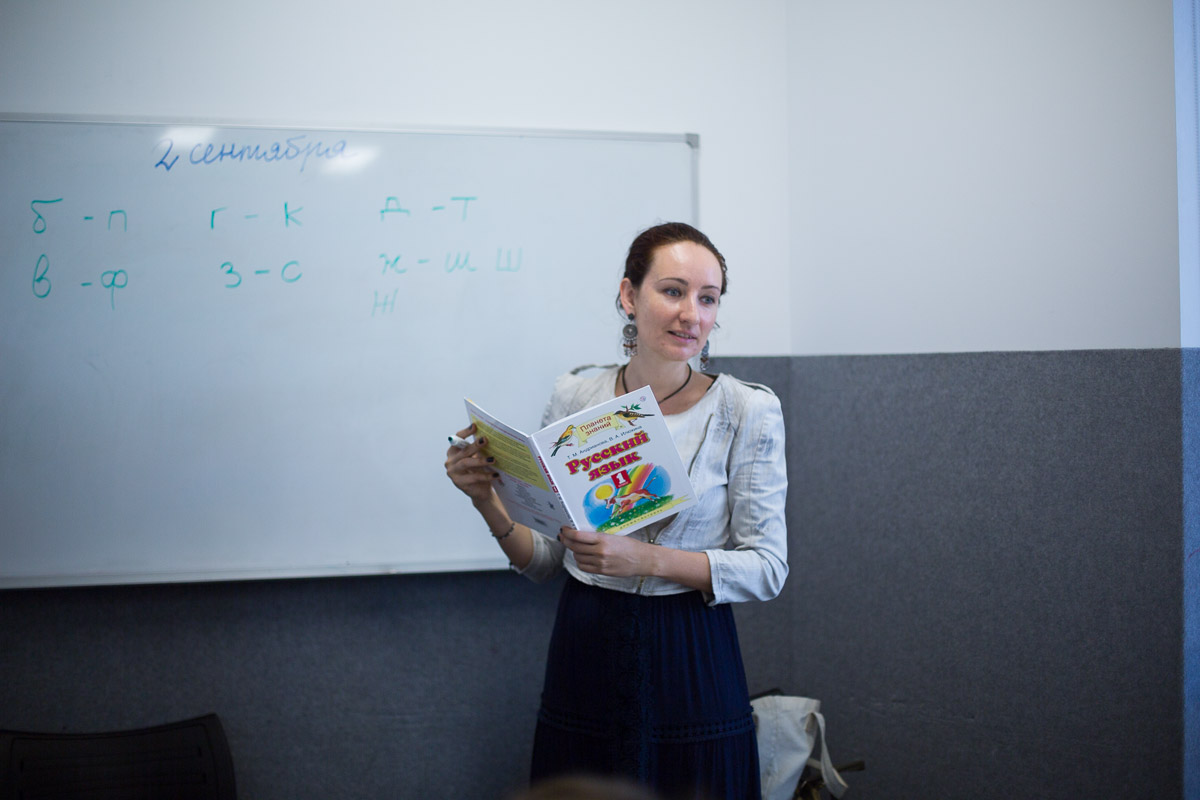 2 сентября
б - п г - к д - т
в - ф з - с ж - ш Ш
Ж
Планета
знаний
Т. М. Андрианова, В. А. Илюхина
Русский
язык
1